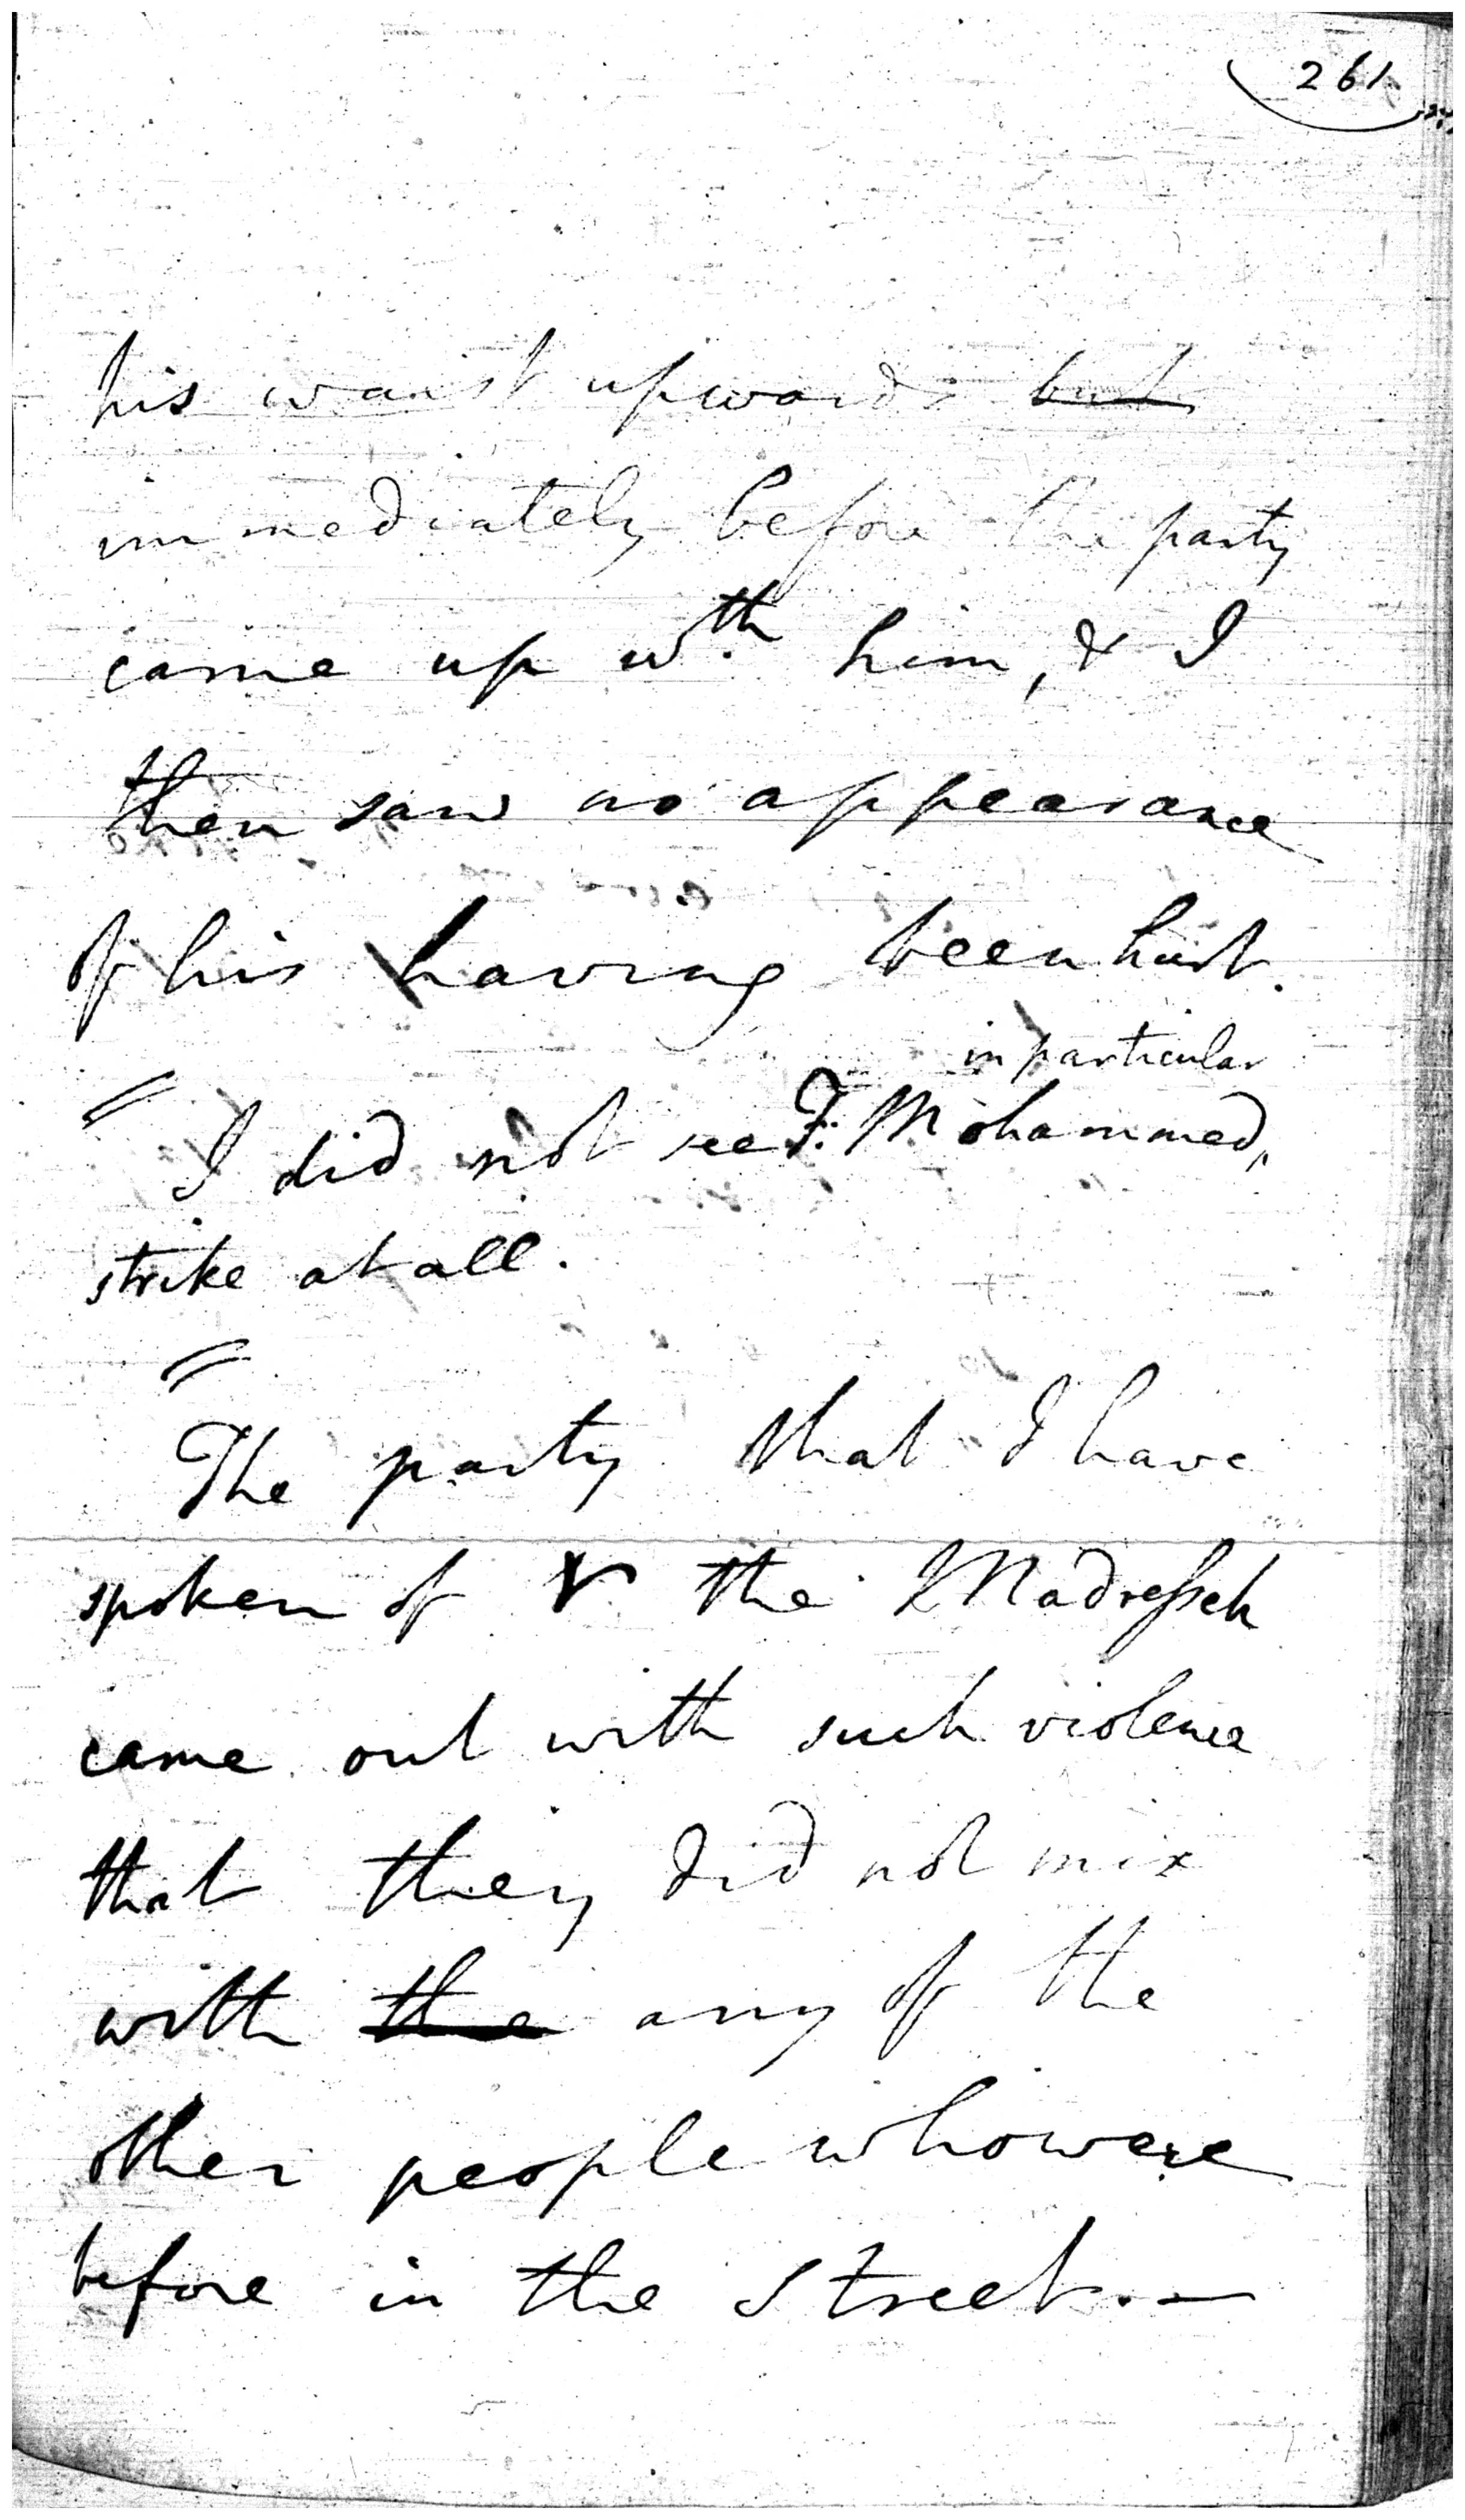 261
his waist upwards but
immediately before the party
came up wth. him, & I
then saw no appearance
of his having been hurt.
in particular
I did not see F. Mohammed,
strike at all.
The party that I have
spoken of & the Madresseh
came out with such violence
that they did not mix
with the any of the
other people who were
before in the street. —